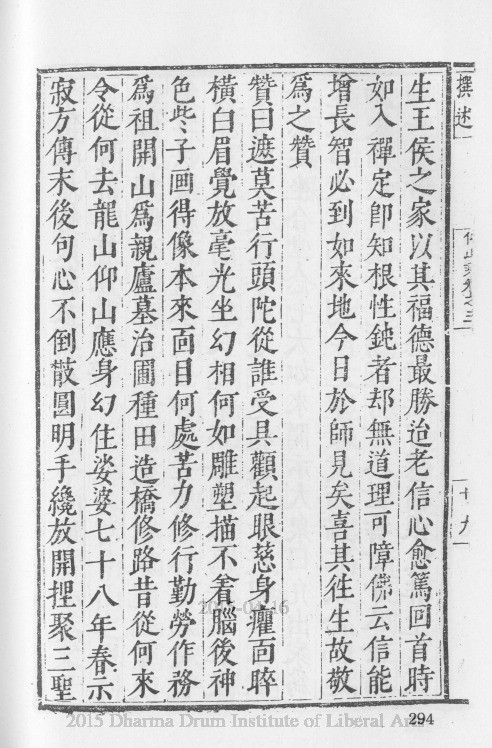 撰述
十九
生王侯之家以其福德最勝迨老信心愈篤回首時
如入禪定卽知根性鈍者却無道理可障佛云信能
增長智必到如來地今日於師見矣喜其徃生故敬
爲之贊
贊曰遮莫苦行頭陀從誰受具顴起眼慈身癯面睟
橫白眉覺放毫光坐幻相何如雕塑描不着腦後神
色些々子画得像本來面目何處苦力修行勤勞作務
爲祖開山爲親廬墓治圃種田造橋修路昔從何來
令從何去龍山仰山應身幻住娑婆七十八年春示
寂方傳末後句心不倒散圓明手纔放開捏聚三聖
2015-04-16
294
2015 Dharma Drum Institute of Liberal Arts